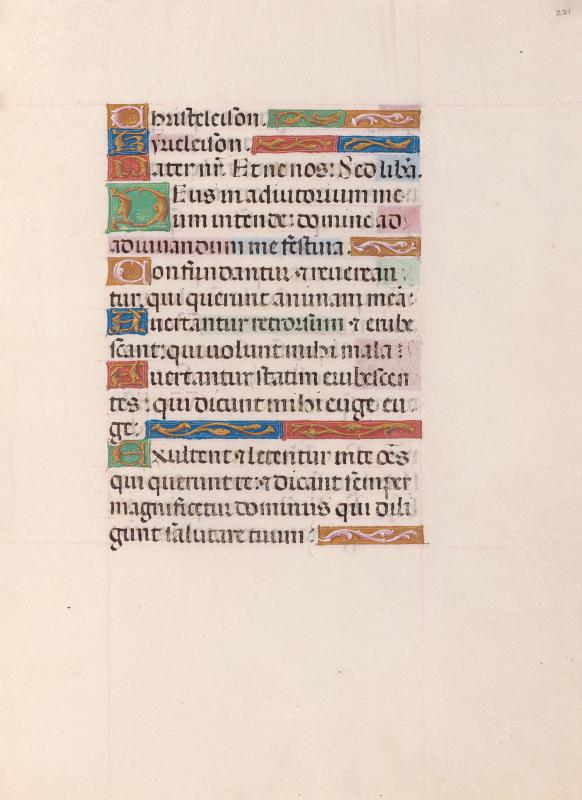 221
Christeleison.
Kyrieleison.
Pater nr̄. Et ne nos: Sed libā.
Deus in adiutorium me
um intende: domine ad
adiuuandum me festina.
Confundantur ⁊ reuerean
tur, qui querunt animam meā:
Auertantur retrorsum ⁊ erube
scant: qui uolunt mihi mala:
Auertantur statim erubescen
tes: qui dicunt mihi euge eu
ge:
Exultent ⁊ letentur in te oēs
qui querunt te: ⁊ dicant semper
magnificetur dominus qui dili
gunt salutare tuum: